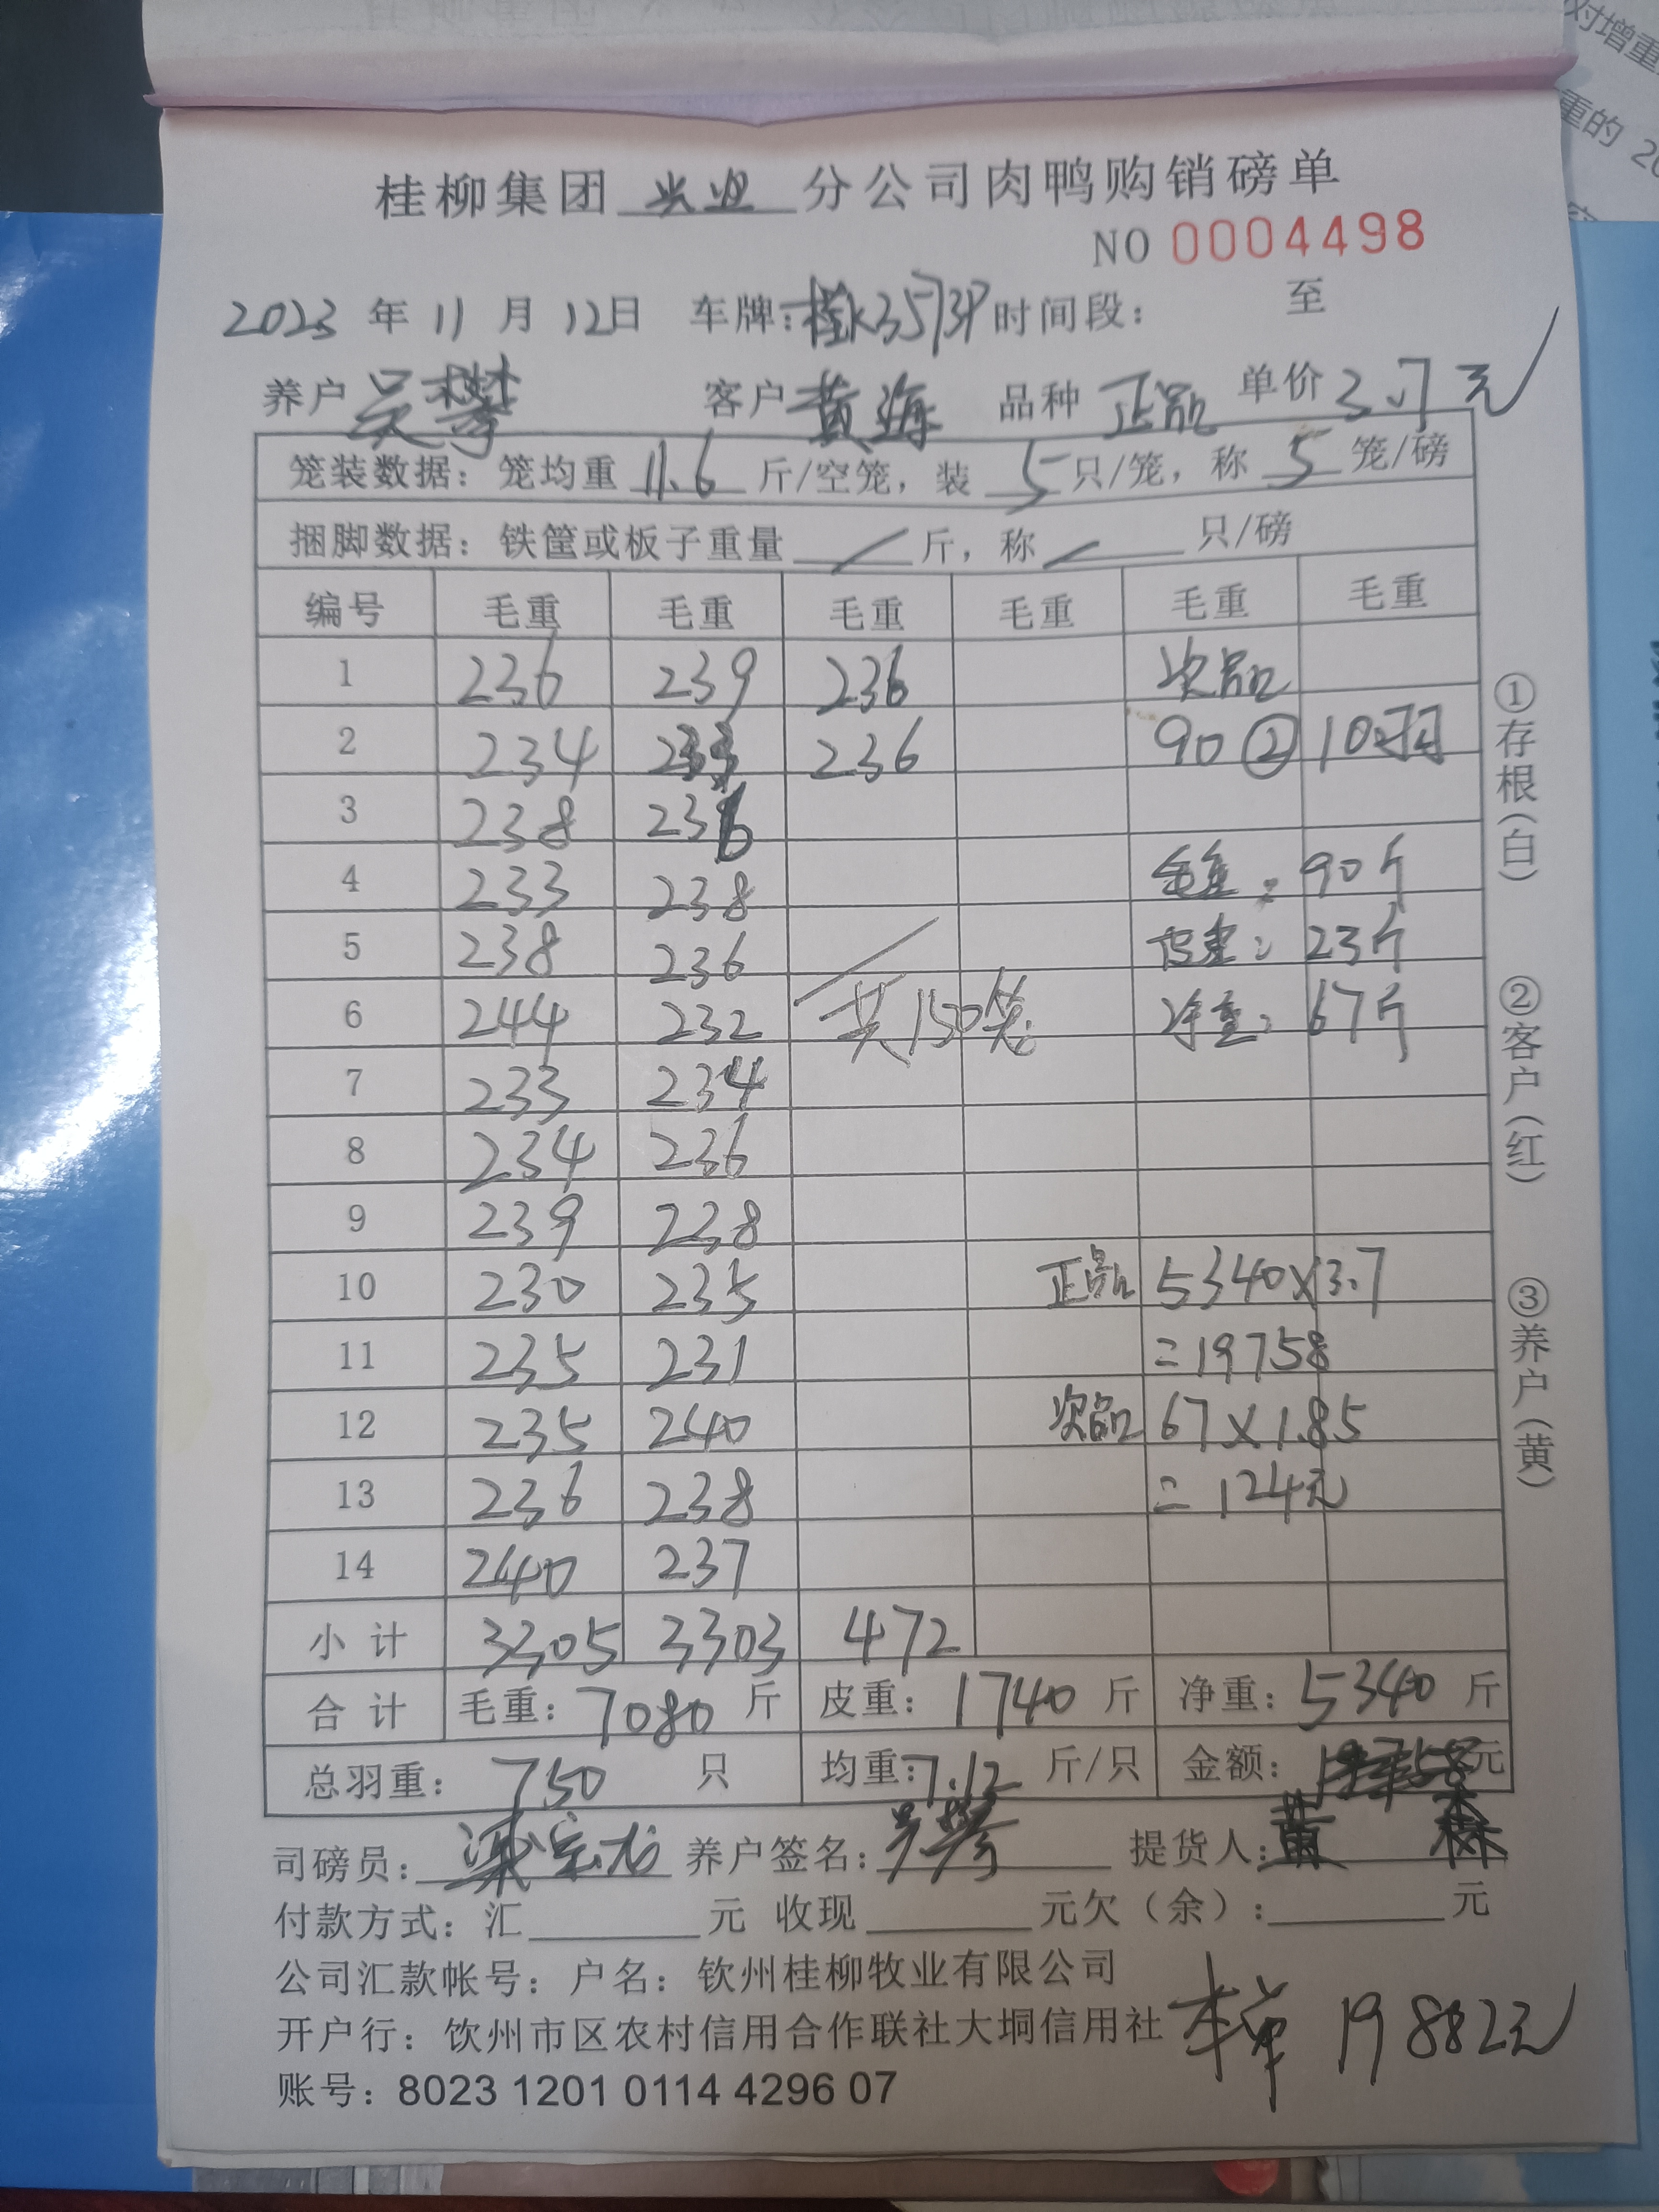 对增重
重的 20
桂柳集团 兴业 分公司肉鸭购销磅单
NO 0004498
2023 年 11 月 12日 车牌：桂K35737 时间段： 至
养户 吴攀 客户 黄海 品种 正品 单价 3.7元
笼装数据：笼均重 11.6 斤/空笼，装 5 只/笼，称 5 笼/磅
捆脚数据：铁筐或板子重量 / 斤，称 / 只/磅
编号 毛重 毛重 毛重 毛重 毛重 毛重
1 236 239 236 次品
2 234 233 236 90 ② 10羽
3 238 236
4 233 238 毛重：90斤
5 238 236 皮重：23斤
6 244 232 共150笼 净重：67斤
7 233 234
8 234 236
9 239 238
10 230 235 正品 5340×3.7
11 235 231 =19758
12 235 240 次品 67×1.85
13 236 238 =124元
14 240 237
小计 3305 3303 472
合计 毛重：7080 斤 皮重：1740 斤 净重：5340 斤
总羽重：750 只 均重：7.12 斤/只 金额：19758元
司磅员：梁宗龙 养户签名：吴攀 提货人：黄 森
付款方式：汇 元 收现 元欠（余）： 元
公司汇款帐号：户名：钦州桂柳牧业有限公司
开户行：钦州市区农村信用合作联社大垌信用社
本单 19882元
账号：8023 1201 0114 4296 07
①存根（白）
②客户（红）
③养户（黄）